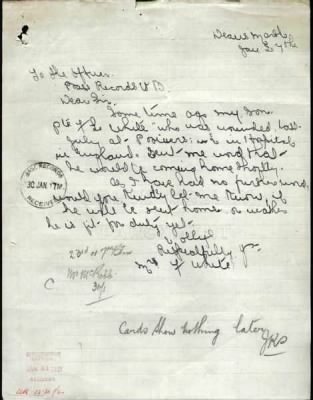 Jan 27th
To the Officer
Base Records V.B.
Dear Sir.
Some time ago my son
Pte F. L. White who was wounded last
July at Poziers: who in Hospital
in England. Sent me word that
he would be coming home shortly.
As I have had no further word
would you kindly let me know if
he will be sent home or wether
he is fit for duty yet.
I
Respectfully yrs
Mrs F White
BASE RECORDS
30 JAN. 17
RECEIVED
23rd
30/1
C
Cards show nothing later
JKS